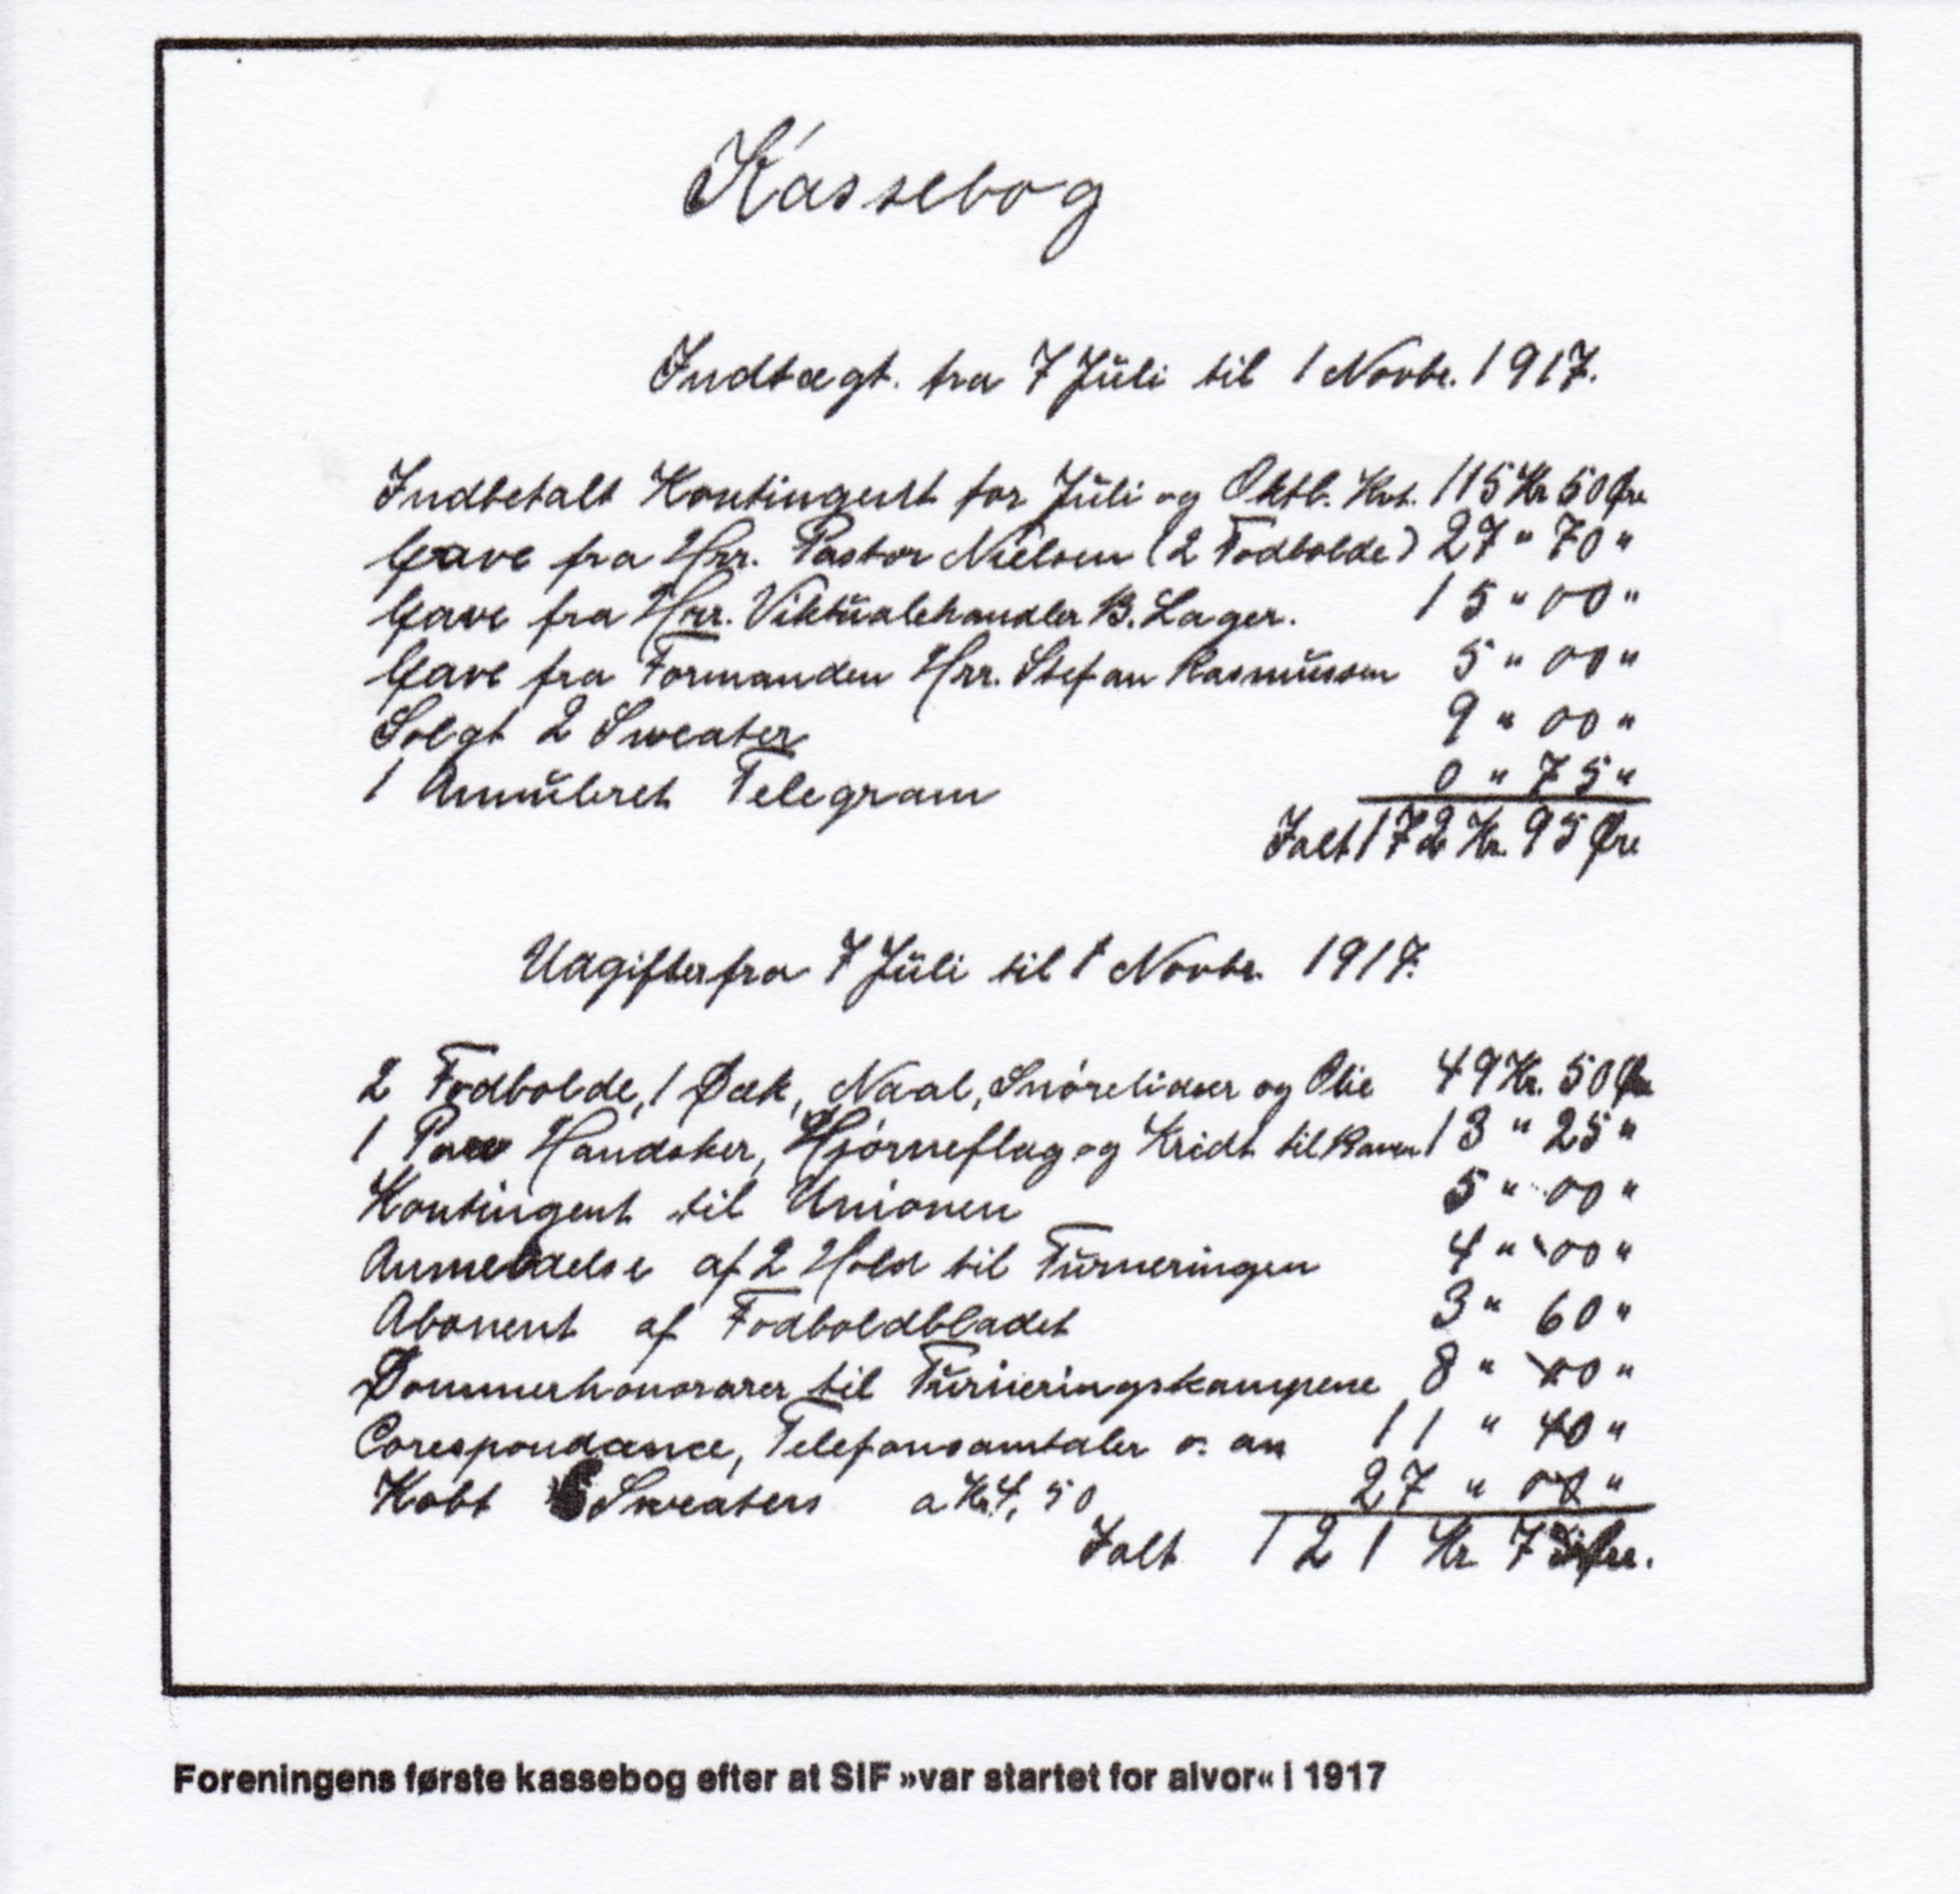 Kassebog
Indtægt. fra 7 Juli til 1 Novbr. 1917.
Indbetalt Kontingent for Juli og Oktb. Kvt. 115 Kr 50 Øre
Gave fra Hrr. Pastor Nielsen (2 Fodbolde) 27 " 70 "
Gave fra Hrr. Viktualehandler B. Lager. 15 " 00 "
Gave fra Formanden Hrr. Stefan Rasmussen 5 " 00 "
Solgt 2 Sweater 9 " 00 "
1 Annuleret Telegram 0 " 75 "
Ialt 172 Kr. 95 Øre
Udgifter fra 7 Juli til 1 Novbr. 1917.
2 Fodbolde, 1 Dæk, Naal, Snörelidser og Olie 49 Kr. 50 Øre
1 Par Handsker, Hjörneflag og Kridt til Banen 13 " 25 "
Kontingent til Unionen 5 " 00 "
Anmeldelse af 2 Hold til Turneringen 4 " 00 "
Abonent af Fodboldbladet 3 " 60 "
Dommerhonorarer til Turneringskampene 8 " 00 "
Corespondance, Telefonsamtaler o. an 11 " 40 "
Kobt 6 Sweaters a Kr 4,50 27 " 00 "
Ialt 121 Kr 75 Øre.
Foreningens første kassebog efter at SIF »var startet for alvor« i 1917